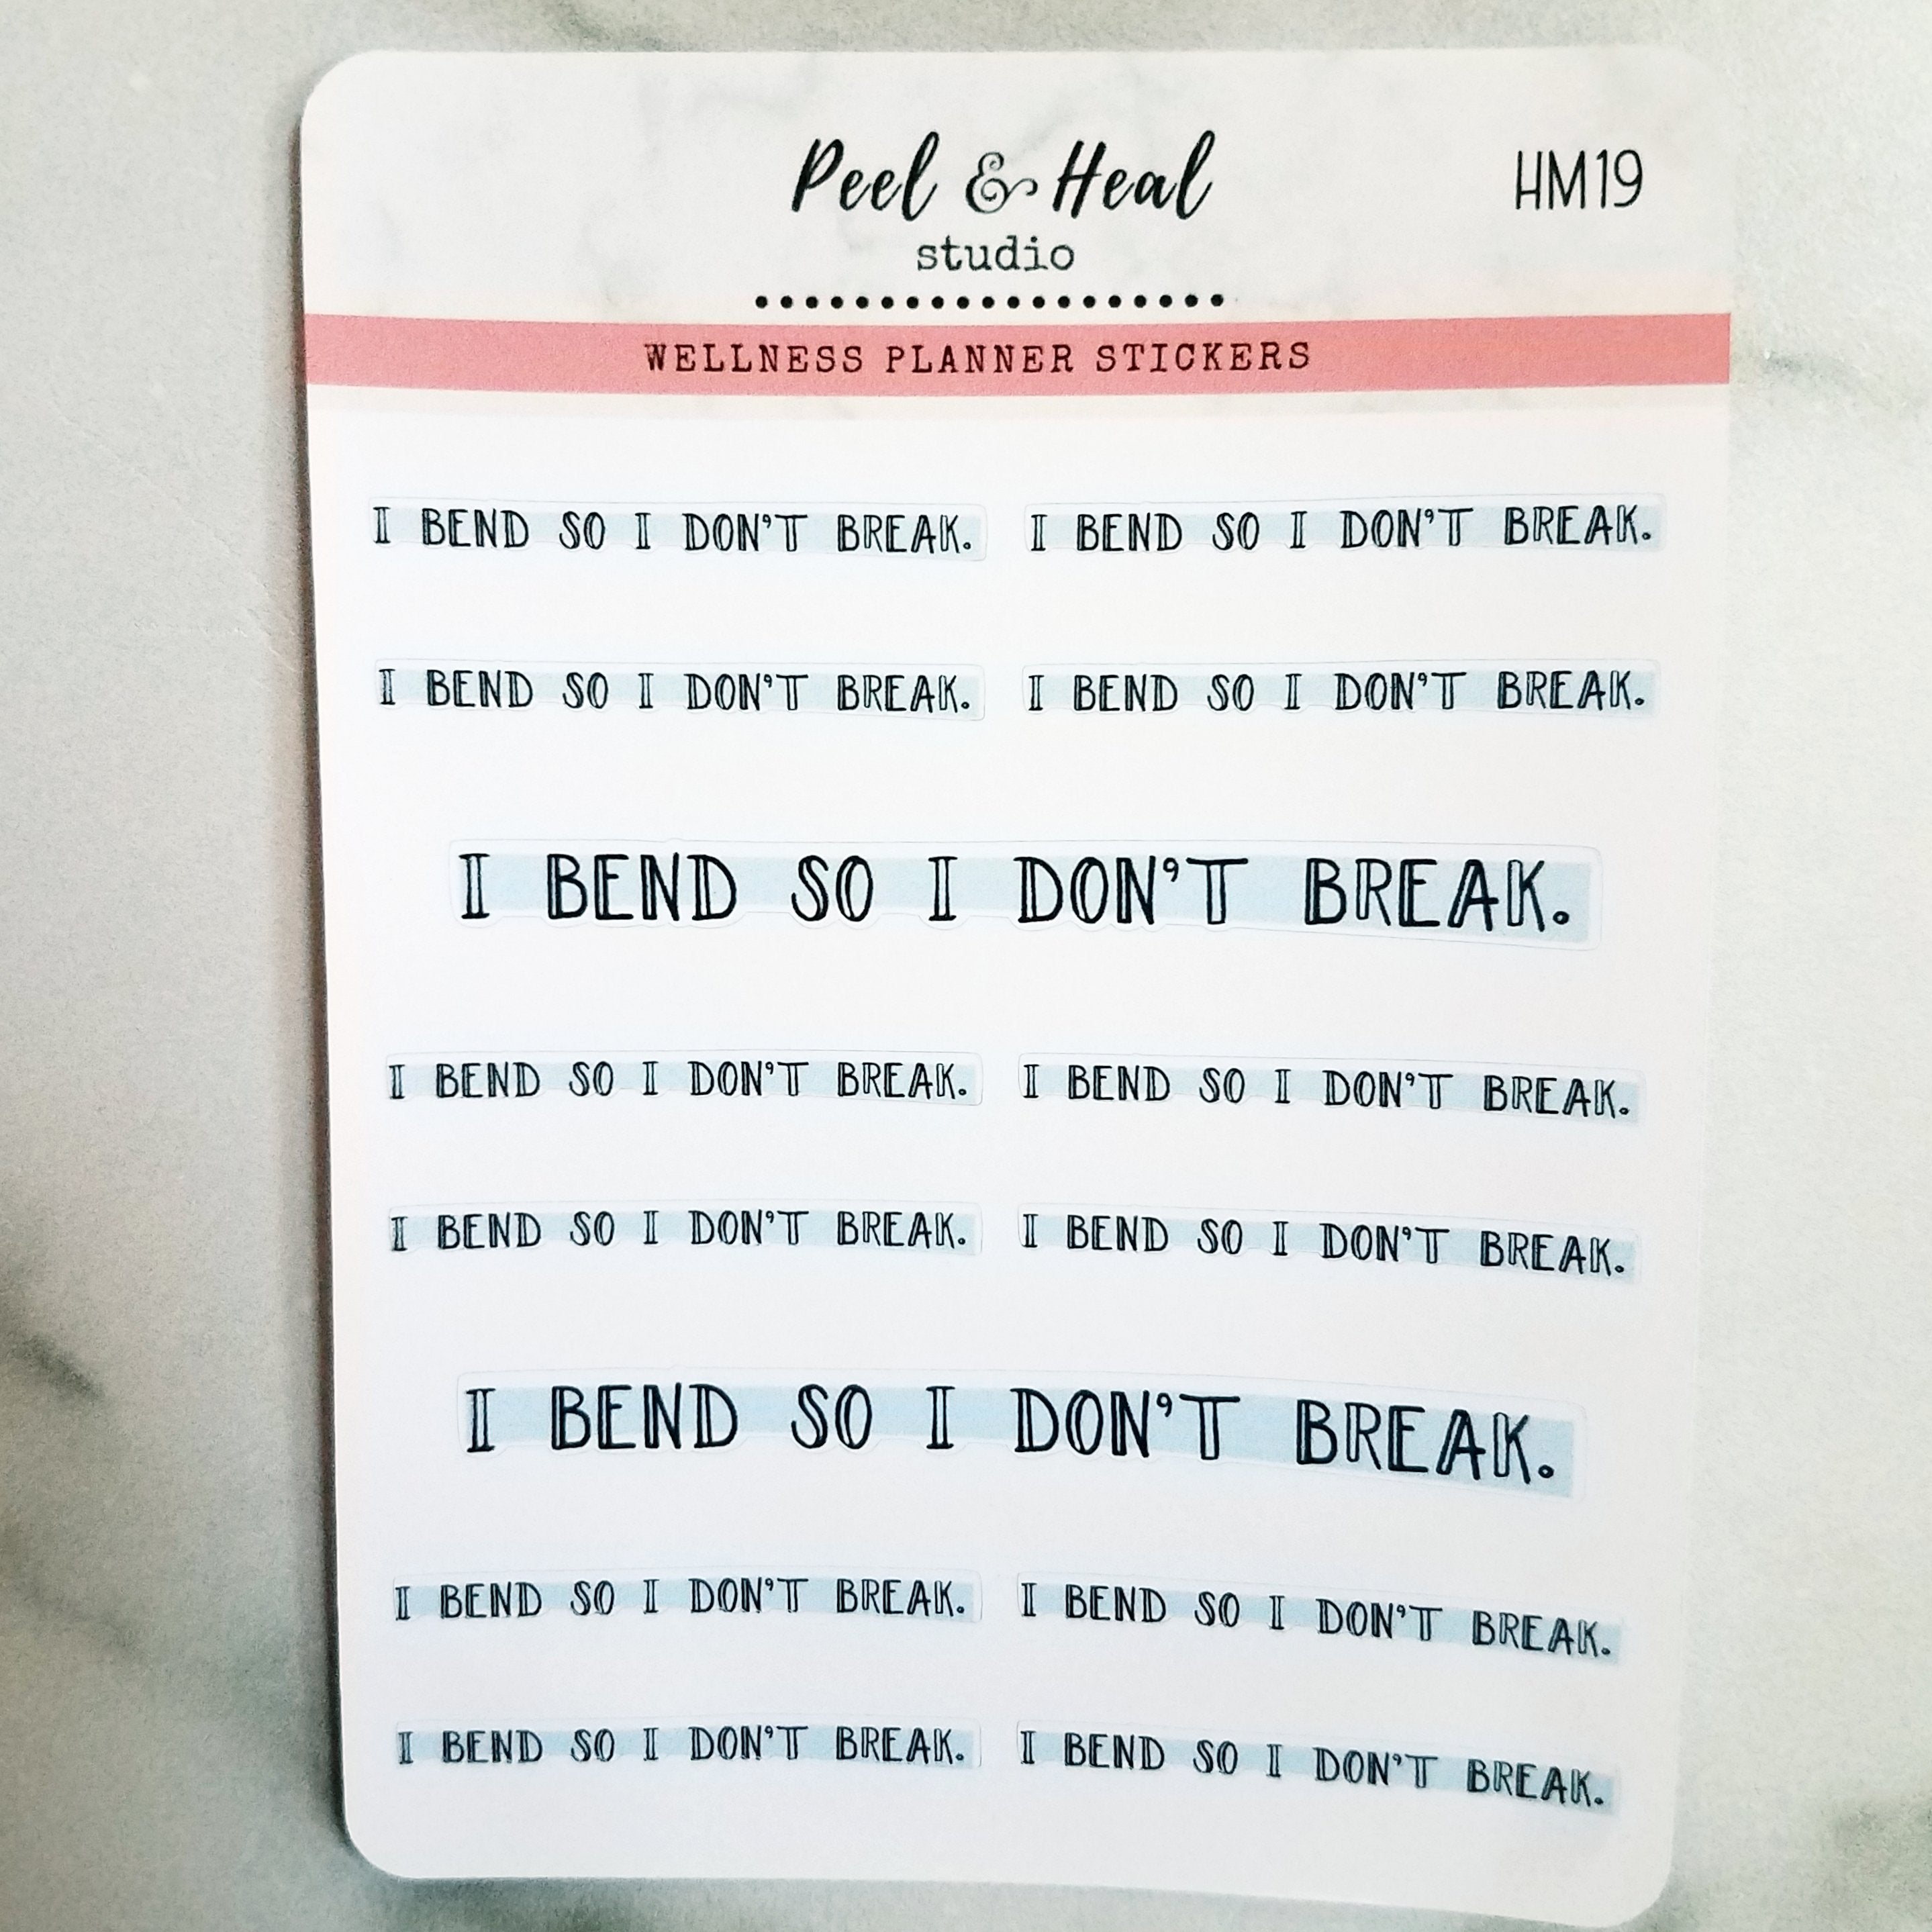 Peel & Heal HM19
studio
WELLNESS PLANNER STICKERS
I BEND SO I DON'T BREAK. I BEND SO I DON'T BREAK.
I BEND SO I DON'T BREAK. I BEND SO I DON'T BREAK.
I BEND SO I DON'T BREAK.
I BEND SO I DON'T BREAK. I BEND SO I DON'T BREAK.
I BEND SO I DON'T BREAK. I BEND SO I DON'T BREAK.
I BEND SO I DON'T BREAK.
I BEND SO I DON'T BREAK. I BEND SO I DON'T BREAK.
I BEND SO I DON'T BREAK. I BEND SO I DON'T BREAK.